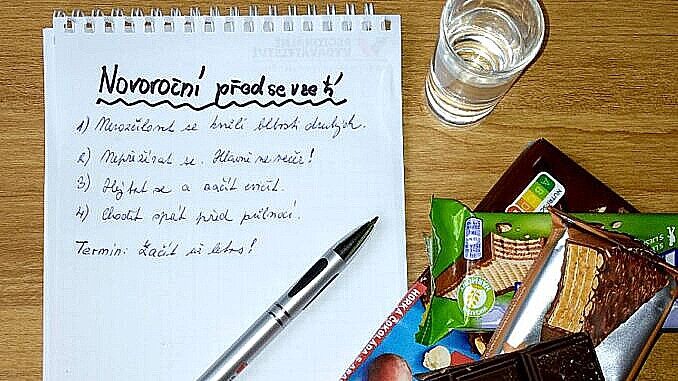 Novoroční předsevzetí
1) Nerozčilovat se kvůli blbosti druhých.
2) Nepřežírat se. Hlavně ne večer!
3) Hejbat se a začít cvičit.
4) Chodit spát před půlnocí.
Termín: Začít už letos!
HORKÁ ČOKOLÁDA S